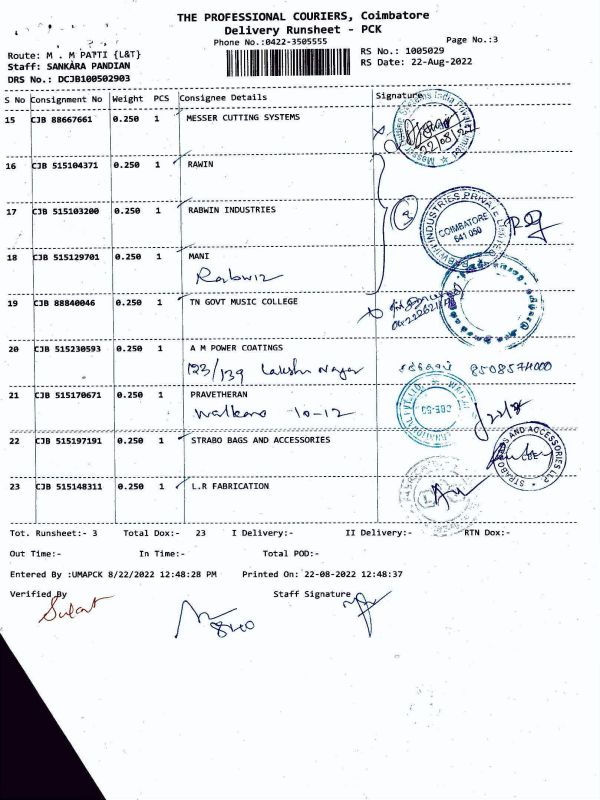 THE PROFESSIONAL COURIERS, Coimbatore
Delivery Runsheet - PCK
Phone No.:0422-3505555
Page No.:3
Route: M . M PATTI {L&T}
RS No.: 1005029
Staff: SANKARA PANDIAN
RS Date: 22-Aug-2022
DRS No.: DCJB100502903
S No Consignment No Weight PCS Consignee Details Signature
15 CJB 88667661 0.250 1 MESSER CUTTING SYSTEMS
22/08/22
16 CJB 515104371 0.250 1 RAWIN
17 CJB 515103200 0.250 1 RABWIN INDUSTRIES
3
RABWIN INDUSTRIES PRIVATE LIMITED
COIMBATORE
641 050
18 CJB 515129701 0.250 1 MANI
Rabwin
19 CJB 88840046 0.250 1 TN GOVT MUSIC COLLEGE
20 CJB 515230593 0.250 1 A M POWER COATINGS
123/139 Lakshu Nagar
8508574000
21 CJB 515170671 0.250 1 PRAVETHERAN
Walkaro 10-12
22 CJB 515197191 0.250 1 STRABO BAGS AND ACCESSORIES
STRABO BAGS AND ACCESSORIES LLP
CBE
23 CJB 515148311 0.250 1 L.R FABRICATION
Tot. Runsheet:- 3 Total Dox:- 23 I Delivery:- II Delivery:- RTN Dox:-
Out Time:- In Time:- Total POD:-
Entered By :UMAPCK 8/22/2022 12:48:28 PM Printed On: 22-08-2022 12:48:37
Verified By Staff Signature
840